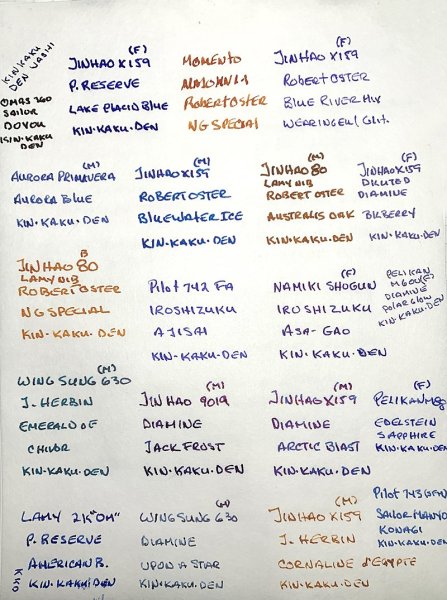 KIN·KAKU
DEN WASHI
OMAS 360
SAILOR
DOYOU
KIN·KAKU
DEN
(F)
JINHAO X159
P. RESERVE
LAKE PLACID BLUE
KIN·KAKU·DEN
MOMENTO
ROBERT OSTER
NG SPECIAL
(F)
JINHAO X159
ROBERT OSTER
BLUE RIVER MIX
WEARINGEUL GLIT.
(M)
AURORA PRIMAVERA
AURORA BLUE
KIN·KAKU·DEN
(M)
JINHAO X159
ROBERT OSTER
BLUE WATER ICE
KIN·KAKU·DEN
(M)
JINHAO 80
LAMY NIB
ROBERT OSTER
AUSTRALIS OAK
KIN·KAKU·DEN
(F)
JINHAO X159
DILUTED
DIAMINE
BILBERRY
KIN·KAKU·DEN
B
JINHAO 80
LAMY NIB
ROBERT OSTER
NG SPECIAL
KIN·KAKU·DEN
PILOT 742 FA
IROSHIZUKU
AJISAI
KIN·KAKU·DEN
(F)
NAMIKI SHOGUN
IROSHIZUKU
ASA-GAO
KIN·KAKU·DEN
PELIKAN
M600(F)
DIAMINE
POLAR GLOW
KIN·KAKU·DEN
(M)
WING SUNG 630
J. HERBIN
EMERALD OF
CHIVOR
KIN·KAKU·DEN
(M)
JINHAO 9019
DIAMINE
JACK FROST
KIN·KAKU·DEN
(M)
JINHAO X159
DIAMINE
ARCTIC BLAST
KIN·KAKU·DEN
(F)
PELIKAN M80
EDELSTEIN
SAPPHIRE
KIN·KAKU·DEN
LAMY 2K "OM"
P. RESERVE
AMERICAN B.
KIN·KAKU·DEN
(M)
WING SUNG 630
DIAMINE
UPON A STAR
KIN·KAKU·DEN
(M)
JINHAO X159
J. HERBIN
CORNALINE D'EGYPTE
KIN·KAKU·DEN
PILOT 743
SAILOR MANYO
KONAGI
KIN·KAKU·DEN
KKD